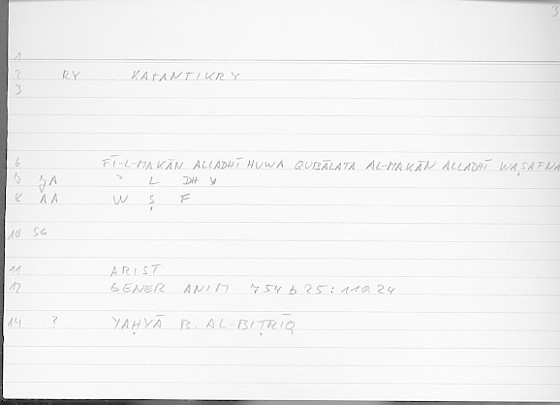 3
1
2 RY KATANTIKRY
3
6 FĪ-L-MAKĀN ALLADHĪ HUWA QUBĀLATA AL-MAKĀN ALLADHĪ WAṢAFNA
L DH
8 AA W Ṣ F
10 SG
11 ARIST
12 GENER ANIM 754 b 25 : 110.24
14 ? YAḤYĀ B. AL-BIṬRĪQ